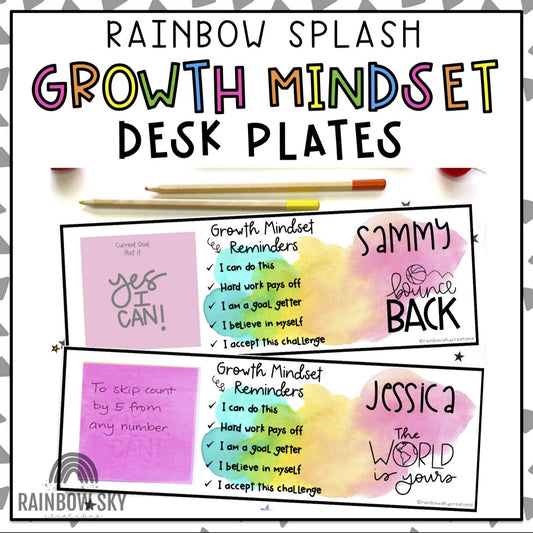 RAINBOW SPLASH
GROWTH MINDSET
DESK PLATES
Current Goal
Post it
yes
I
CAN!
Growth Mindset
Reminders
✓ I can do this
✓ Hard work pays off
✓ I am a goal getter
✓ I believe in myself
✓ I accept this challenge
SAMMY
bounce
BACK
©rainbowskycreations
To skip count
by 5 from
any number.
Growth Mindset
Reminders
✓ I can do this
✓ Hard work pays off
✓ I am a goal getter
✓ I believe in myself
✓ I accept this challenge
Jessica
The
WORLD
is yours
©rainbowskycreations
RAINBOW SKY
creations